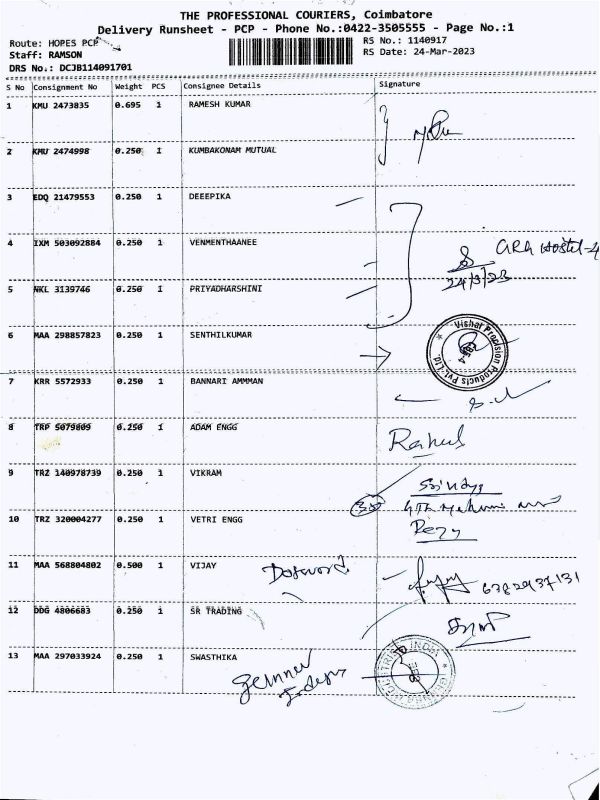 THE PROFESSIONAL COURIERS, Coimbatore
Delivery Runsheet - PCP - Phone No.:0422-3505555 - Page No.:1
Route: HOPES PCP
RS No.: 1140917
Staff: RAMSON
RS Date: 24-Mar-2023
DRS No.: DCJB114091701
S No Consignment No Weight PCS Consignee Details Signature
1 KMU 2473835 0.695 1 RAMESH KUMAR
2 KMU 2474998 0.250 1 KUMBAKONAM MUTUAL
3 EDQ 21479553 0.250 1 DEEEPIKA
4 IXM 503092884 0.250 1 VENMENTHAANEE
24/3/23
5 NKL 3139746 0.250 1 PRIYADHARSHINI
6 MAA 298857823 0.250 1 SENTHILKUMAR
Vishal Precision Products Pvt. Ltd.
7 KRR 5572933 0.250 1 BANNARI AMMMAN
8 TRP 5079609 0.250 1 ADAM ENGG
Rahul
9 TRZ 140978739 0.250 1 VIKRAM
10 TRZ 320004277 0.250 1 VETRI ENGG
11 MAA 568804802 0.500 1 VIJAY
6382937131
12 DDG 4806683 0.250 1 SR TRADING
13 MAA 297033924 0.250 1 SWASTHIKA